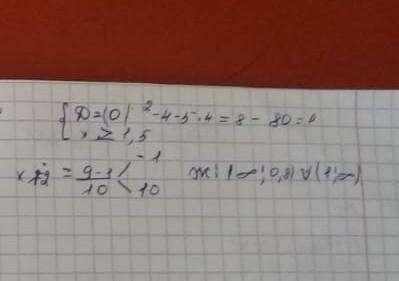 { D=(0)² -4-5·4=8-80=1
x ≥ 1,5
x 12 = 9-1/10 -1
10
ж: (∞; 0,8) ∀ (1; ∞)